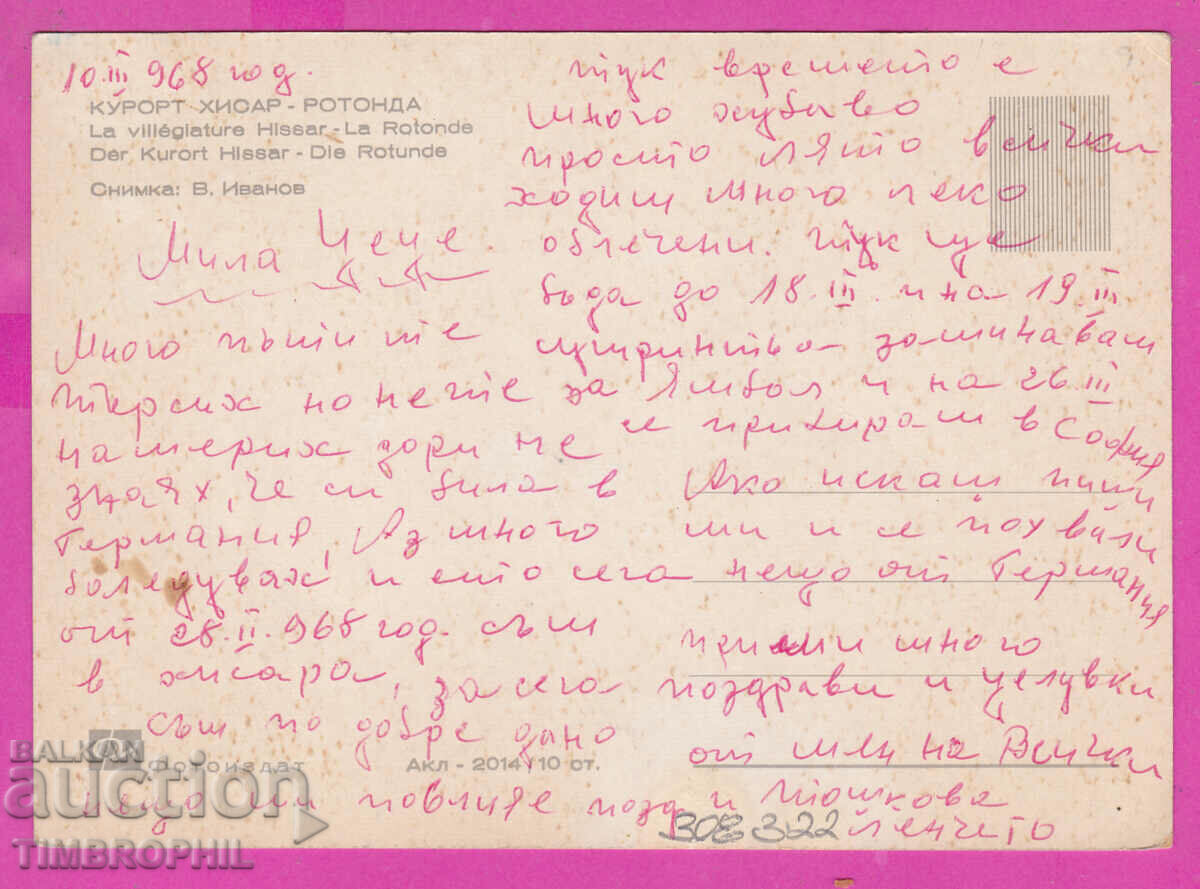 10.III 968 год.
КУРОРТ ХИСАР - РОТОНДА
La villégiature Hissar - La Rotonde
Der Kurort Hissar - Die Rotunde
Снимка: В. Иванов
Мила Цеце.
Много пъти те
търсих но не те
намерих дори не
знаях, че си била в
Германия, Аз много
боледувах и ето сега
от 28.II.968 год. съм
в хисаря, за сега
съм по добре дано
ми повлияе
тук времето е
много хубаво
просто лято всички
ходим много леко
облечени. тук ще
бъда до 18.III. и на 19.III
сутринта заминавам
за Ямбол и на 26.III
се прибирам в София
Ако искаш пиши
ми и се похвали
нещо от Германия
приеми много
поздрави и целувки
от мен на Всички
и Тошкова
Ленчето
Фотоиздат
Акл - 2014 / 10 ст.
308322
BALKAN
auction
TIMBROPHIL